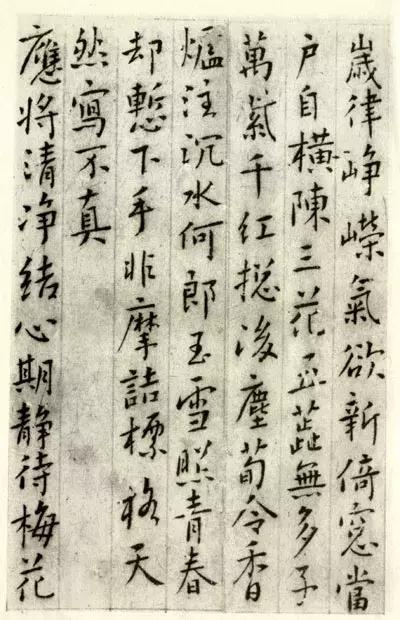 歲律崢嶸氣欲新倚窓當
戶自橫陳三花五蕋無多子
萬紫千紅揔後塵荀令香
爐注沉水何郎玉雪照青春
却慙下手非摩詰標格天
然寫不真
應將清净結心期静待梅花